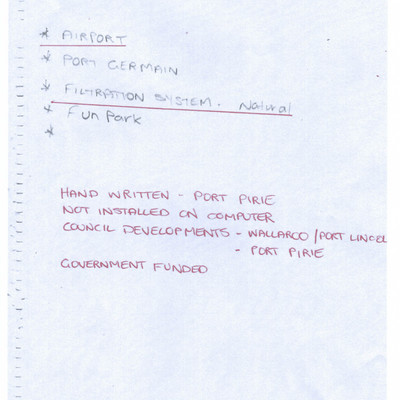 * AIRPORT
* PORT GERMAIN
* FILTRATION SYSTEM. Natural
* Fun Park
*
HAND WRITTEN - PORT PIRIE
NOT INSTALLED ON COMPUTER
COUNCIL DEVELOPMENTS - WALLAROO / PORT LINCOL
- PORT PIRIE
GOVERNMENT FUNDED